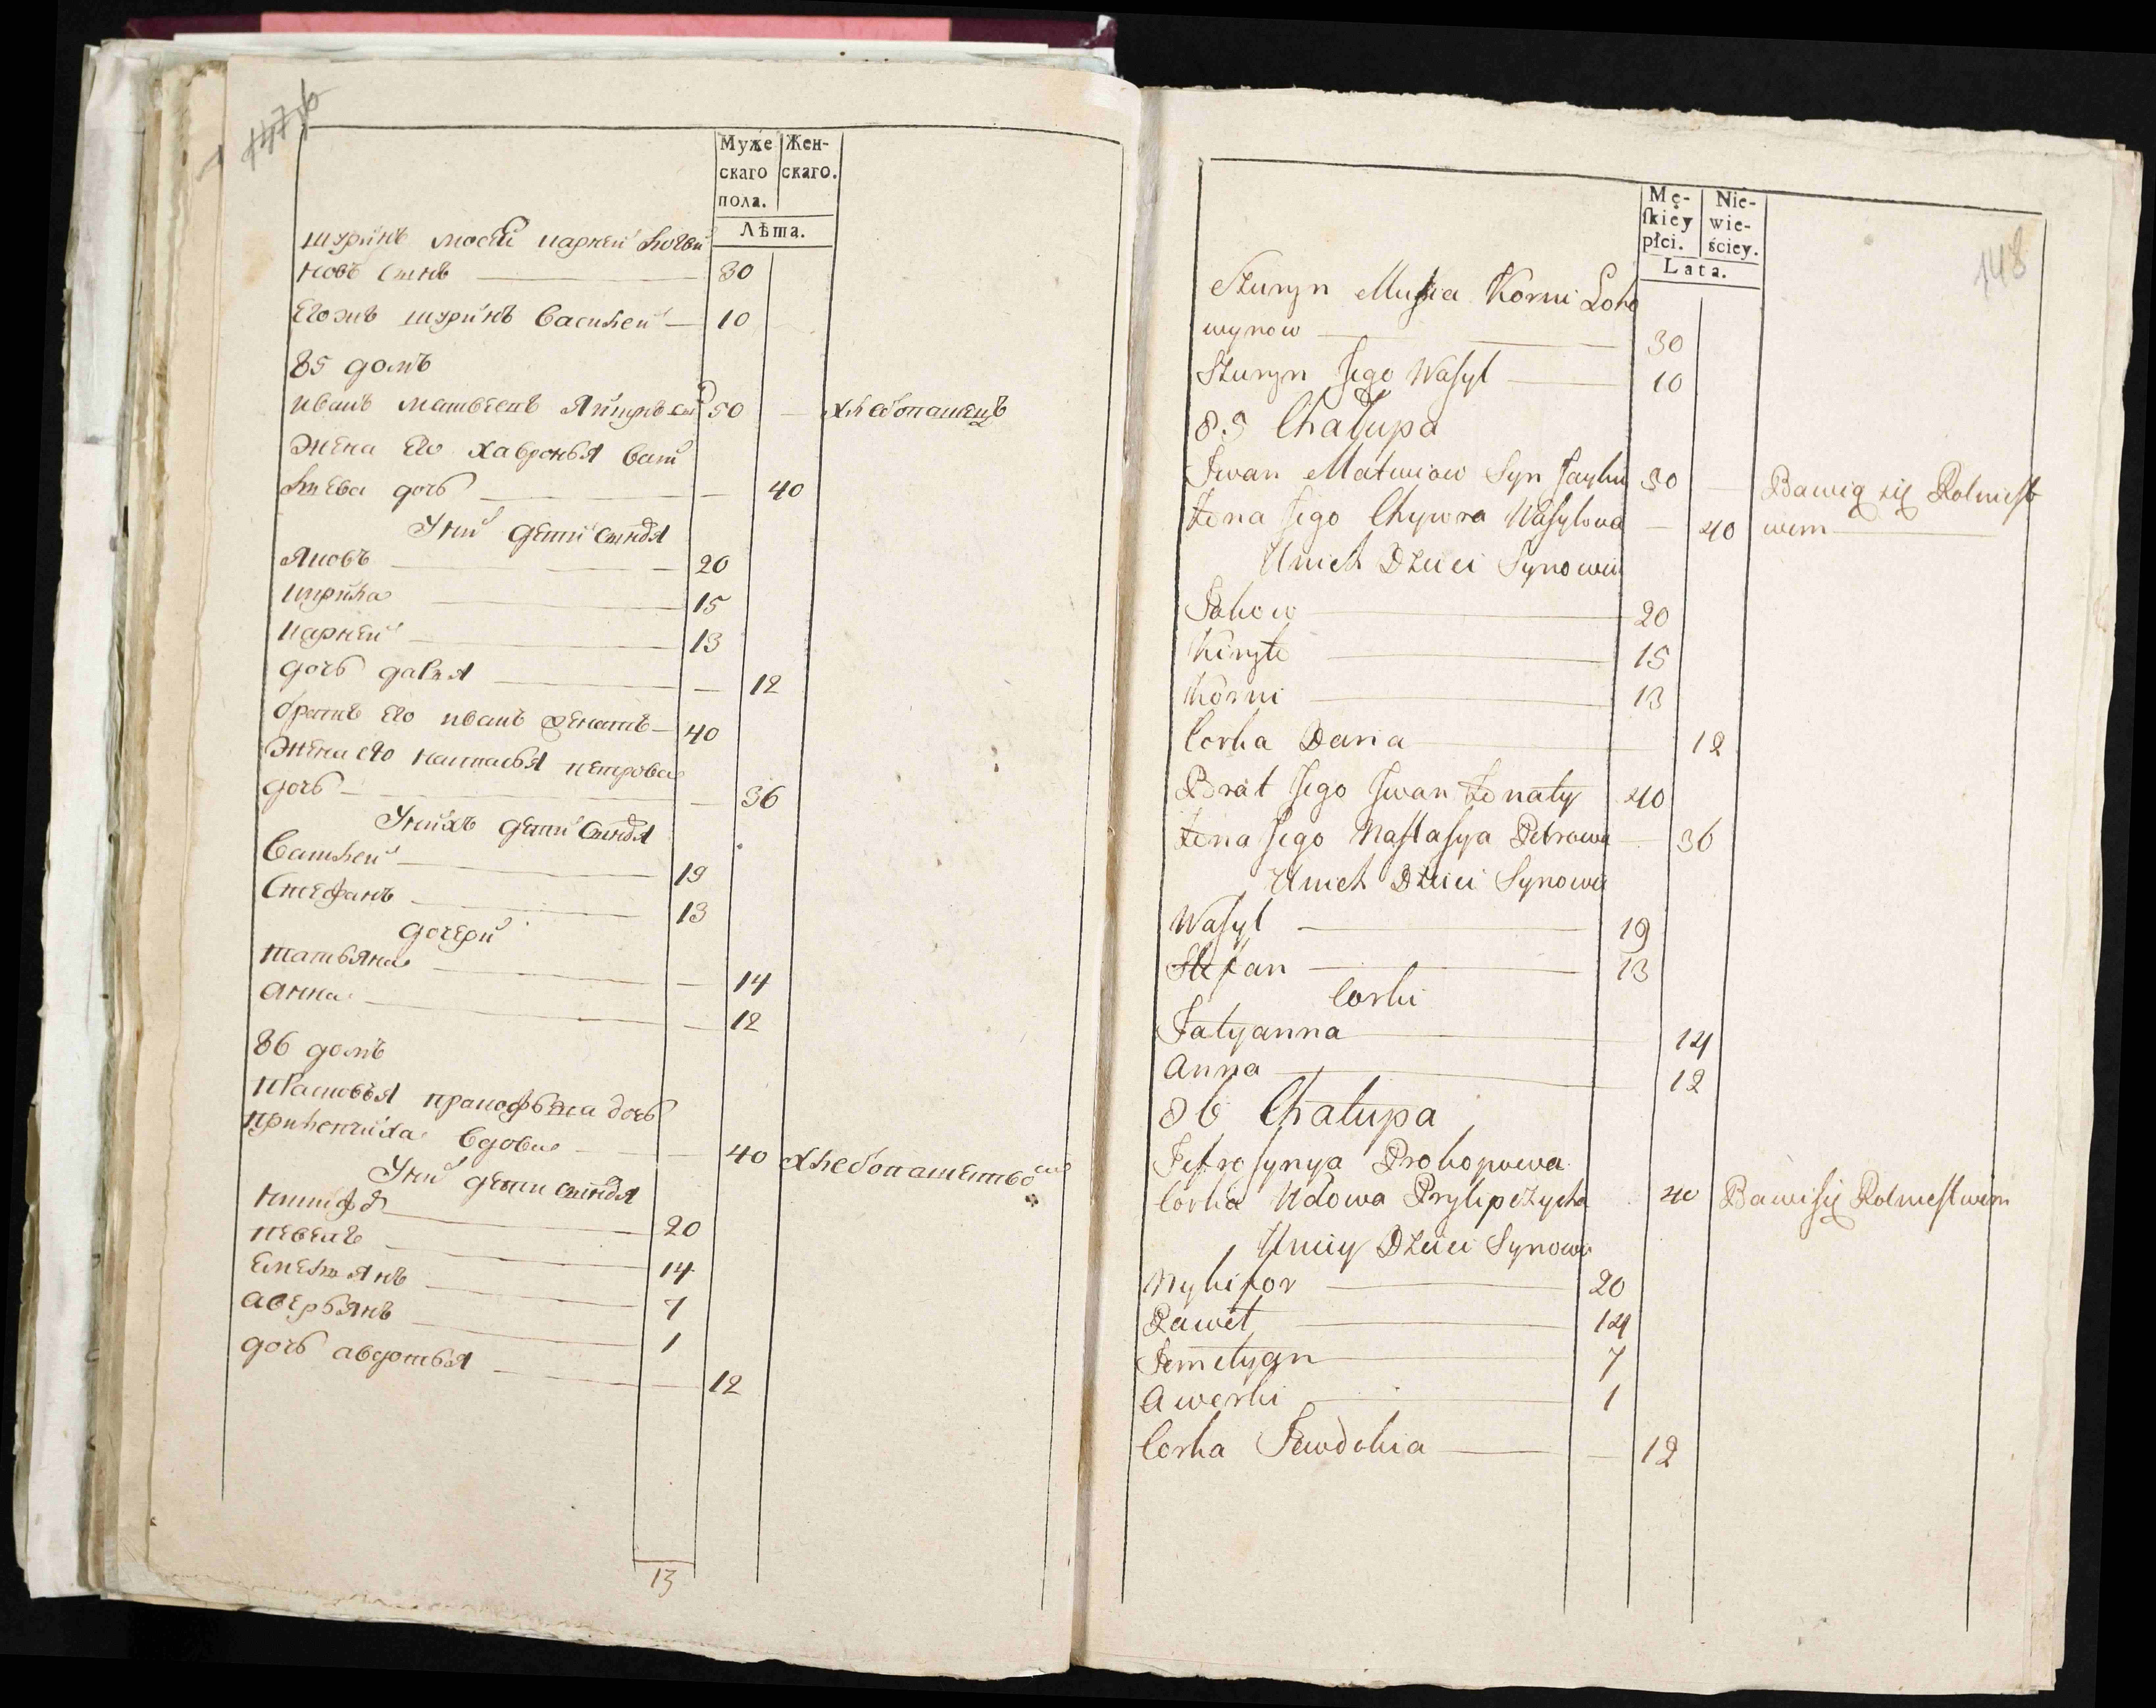 Муже
скаго
пола.
Жен-
скаго.
Лѣта.
шуринъ
новъ сынъ 30
Егожъ шуринъ Василей 10
85 домъ
иванъ матвеевъ 50 хлебопашецъ
жена Его хавронья васи
льева дочь 40
У ни дети сыновя
Яковъ 20
кирила 15
карней 13
дочь дарья 12
братъ Его иванъ женатъ 40
жена его настасья петрова
дочь 36
У нихъ дети сыновя
василей 19
Степанъ 13
дочери
татьяна 14
анна 12
86 домъ
дочь
вдова 40
У ни дети сыновя
20
павелъ 14
емельянъ 7
аверьянъ 1
дочь авдотья 12
13
148
Mę-
ſkiey
płci.
Nie-
wie-
ściey.
Lata.
Szuryn Musia Korni Łoho
wynow 30
Szuryn Jego Wasyl 10
85 Chałupa
Iwan Matwiow Syn 50 Bawią się Rolnicst
Żona Jego Chywra Wasylowa 40 wem
Unich Dzieci Synowie
Jakow 20
Kiryło 15
Korni 13
Corka Daria 12
Brat Jego Iwan Żonaty 40
Żona Jego Nastasya Petrowa 36
Unich Dzieci Synowie
Wasyl 19
Stefan 13
Corki
Tatyanna 14
Anna 12
86 Chałupa
Jefrosynya Prokopowa
Corka Wdowa Prylipczycha 40 Bawi się Rolnictwem
Uniey Dzieci Synowie
Nykifor 20
Paweł 14
Jemelyan 7
Awerki 1
Corka Jewdokia 12